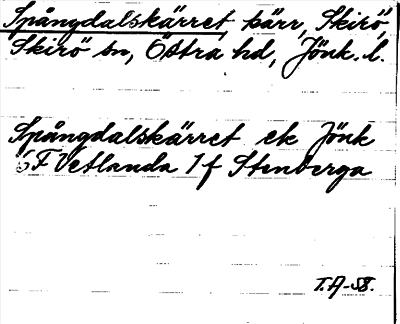 Spångdalskärret, kärr, Skirö,
Skirö sn, Östra hd, Jönk. l.
Spångdalskärret ek Jönk
6F Vetlanda 1 f Stenberga
T.A-58.